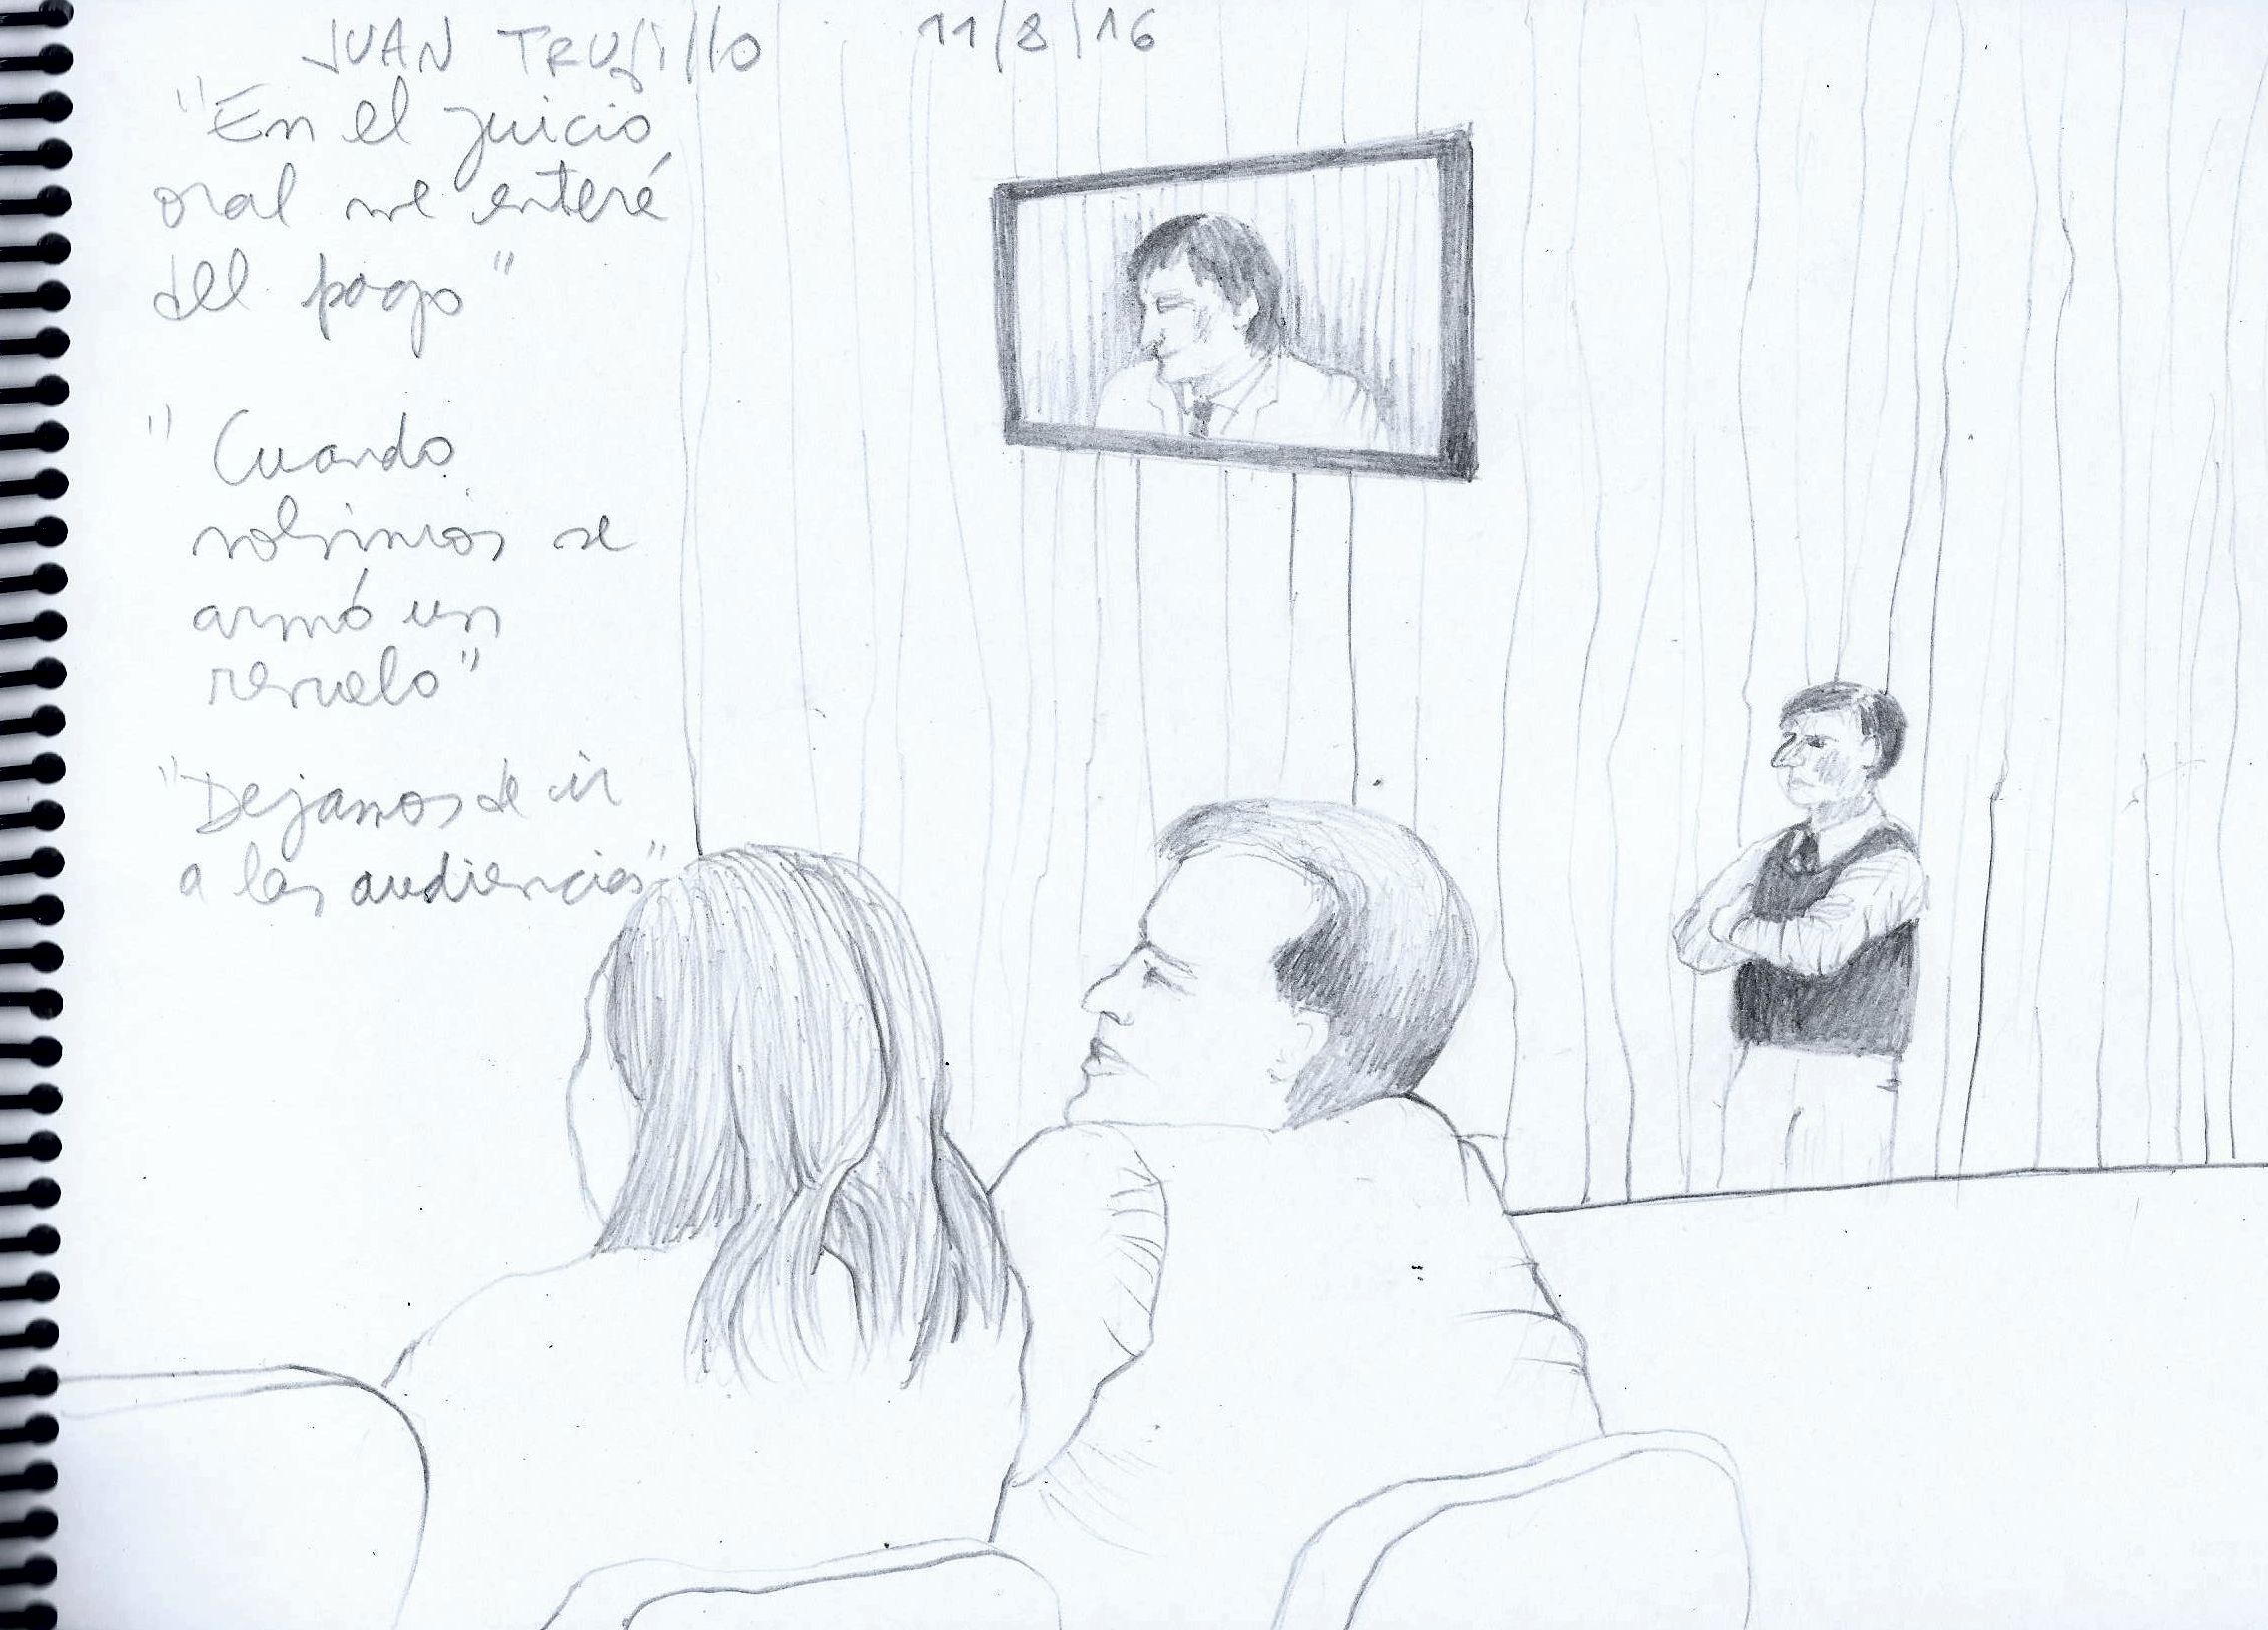 JUAN TRUjillo 11/8/16
"En el juicio
oral me enteré
del pago"
" Cuando
volvimos se
armó un
revuelo"
"Dejamos de ir
a las audiencias"